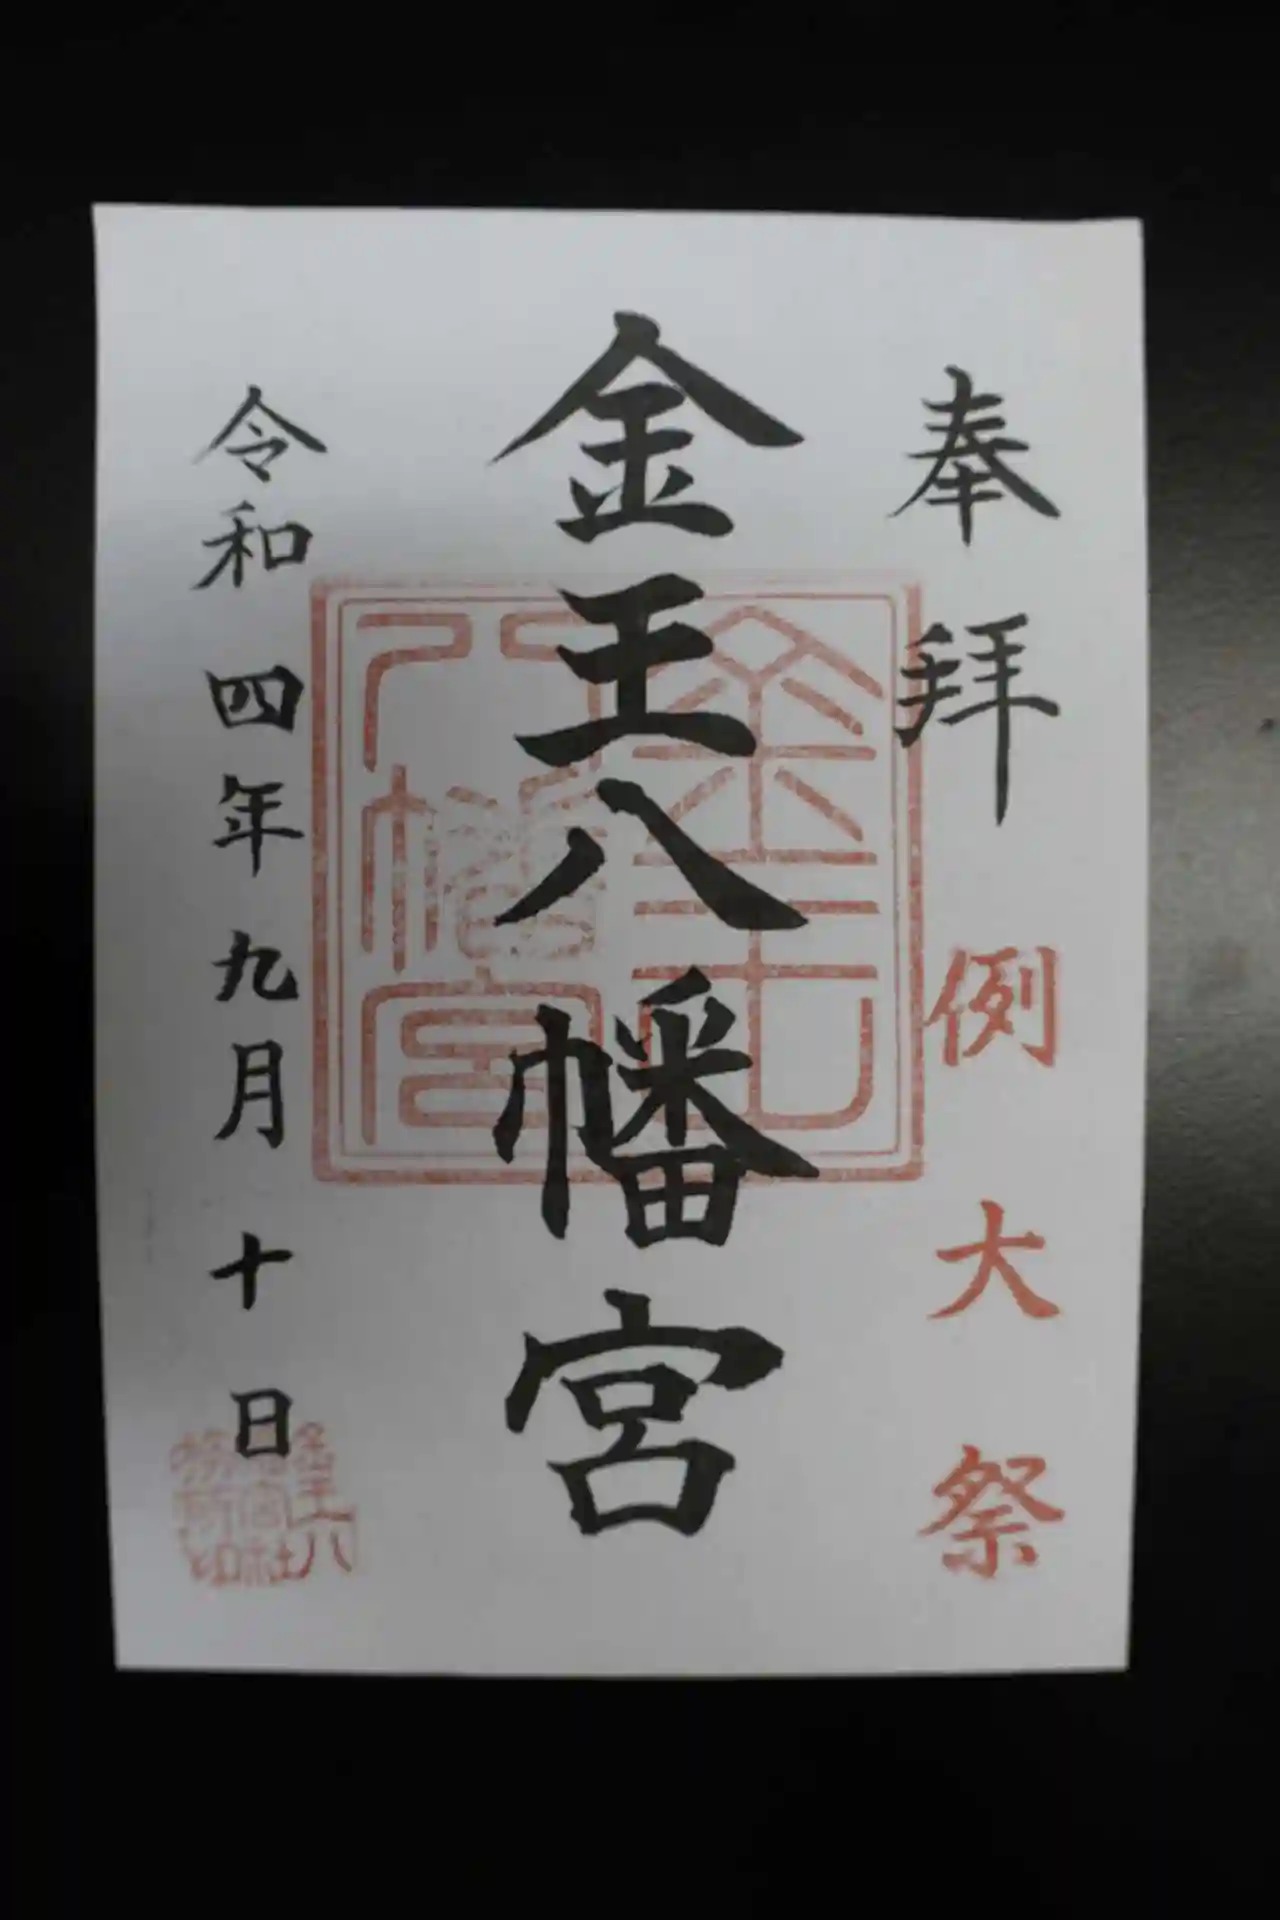 奉拝 例大祭
金王八幡宮
金王八幡宮
令和四年九月十日
金王八幡宮社務所印